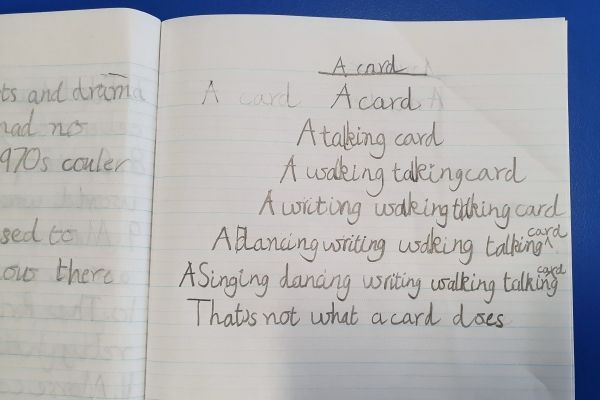 ts and drama
had no
970s couler
sed to
ow there
A card
A card
A card
A talking card
A walking talking card
A writing walking talking card
A Dancing writing walking talking card
A Singing dancing writing walking talking card
That's not what a card does